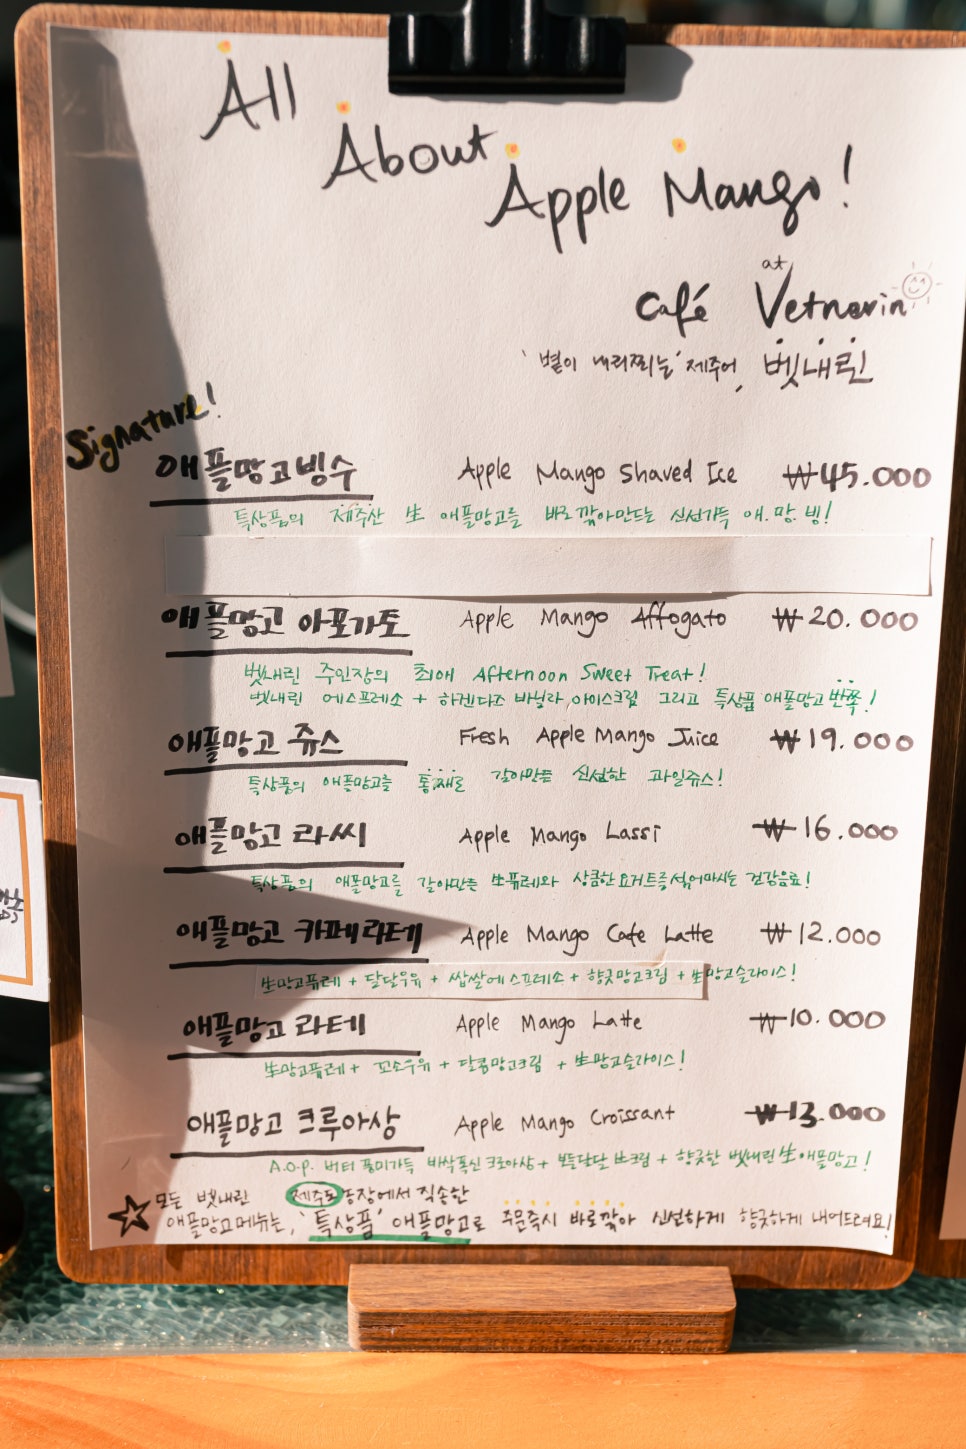 All
About
Apple Mango!
at
Café Vetnerin
'볕이 내리찌는' 제주어, 벳내린
Signature!
애플망고빙수 Apple Mango Shaved Ice ₩45.000
특상품의 제주산 生 애플망고를 바로 깎아만드는 신선가득 애.망.빙!
애플망고 아포가토 Apple Mango Affogato ₩20.000
벳내린 주인장의 최애 Afternoon Sweet Treat!
벳내린 에스프레소 + 하겐다즈 바닐라 아이스크림 그리고 특상품 애플망고 반쪽!
애플망고 쥬스 Fresh Apple Mango Juice ₩19.000
특상품의 애플망고를 통째로 갈아만든 신선한 과일쥬스!
애플망고 라씨 Apple Mango Lassi ₩16.000
특상품의 애플망고를 갈아만든 生퓨레와 상큼한 요거트를 섞어마시는 건강음료!
애플망고 카페라테 Apple Mango Cafe Latte ₩12.000
生망고퓨레 + 달달우유 + 쌉쌀에스프레소 + 향긋망고크림 + 生망고슬라이스!
애플망고 라테 Apple Mango Latte ₩10.000
生망고퓨레 + 꼬소우유 + 달콤망고크림 + 生망고슬라이스!
애플망고 크루아상 Apple Mango Croissant ₩13.000
A.O.P. 버터 풍미가득 바삭폭신 크로아상 + 보들달달 生크림 + 향긋한 벳내린 生애플망고!
모든 벳내린 제주도 농장에서 직송한
애플망고메뉴는, '특상품' 애플망고로 주문즉시 바로깎아 신선하게 향긋하게 내어드려요!